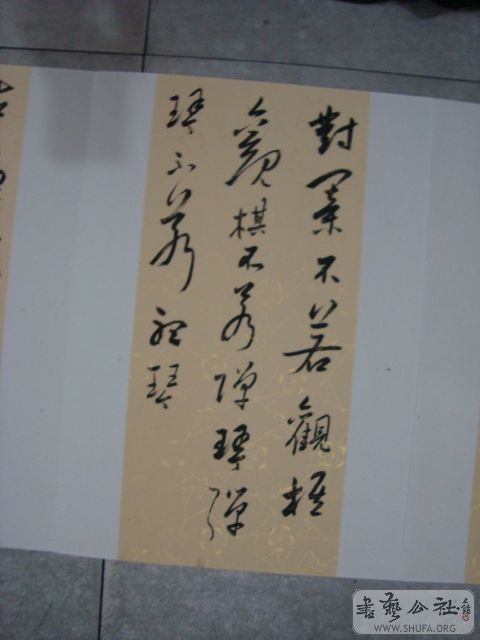 對不若觀棋
觀棋不若彈琴彈
琴不若聽琴
書藝公社
WWW.SHUFA.ORG